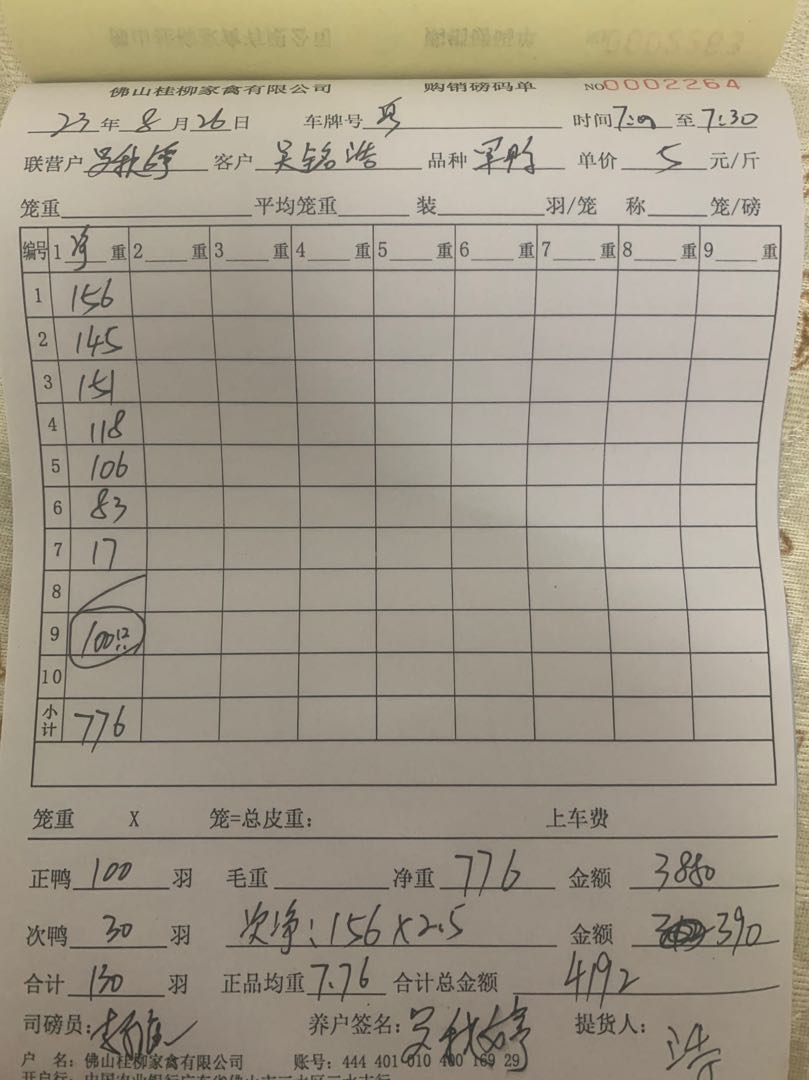 佛山桂柳家禽有限公司 购销磅码单 NO0002264
23年8月26日 车牌号 时间7:00至7:30
联营户 客户吴铭浩 品种 单价5元/斤
笼重 平均笼重 装 羽/笼 称 笼/磅
编号 1净重 2重 3重 4重 5重 6重 7重 8重 9重
1 156
2 145
3 151
4 118
5 106
6 83
7 17
8
9 100只
10
小计 776
笼重 X 笼=总皮重: 上车费
正鸭100羽 毛重 净重776 金额3880
次鸭30羽 次净:156×2.5 金额390
合计130羽 正品均重7.76 合计总金额4192
司磅员: 养户签名: 提货人:浩
户 名:佛山桂柳家禽有限公司 账号:444 401 010 400 169 29
开户行:中国农业银行广东省佛山市三水区三水支行